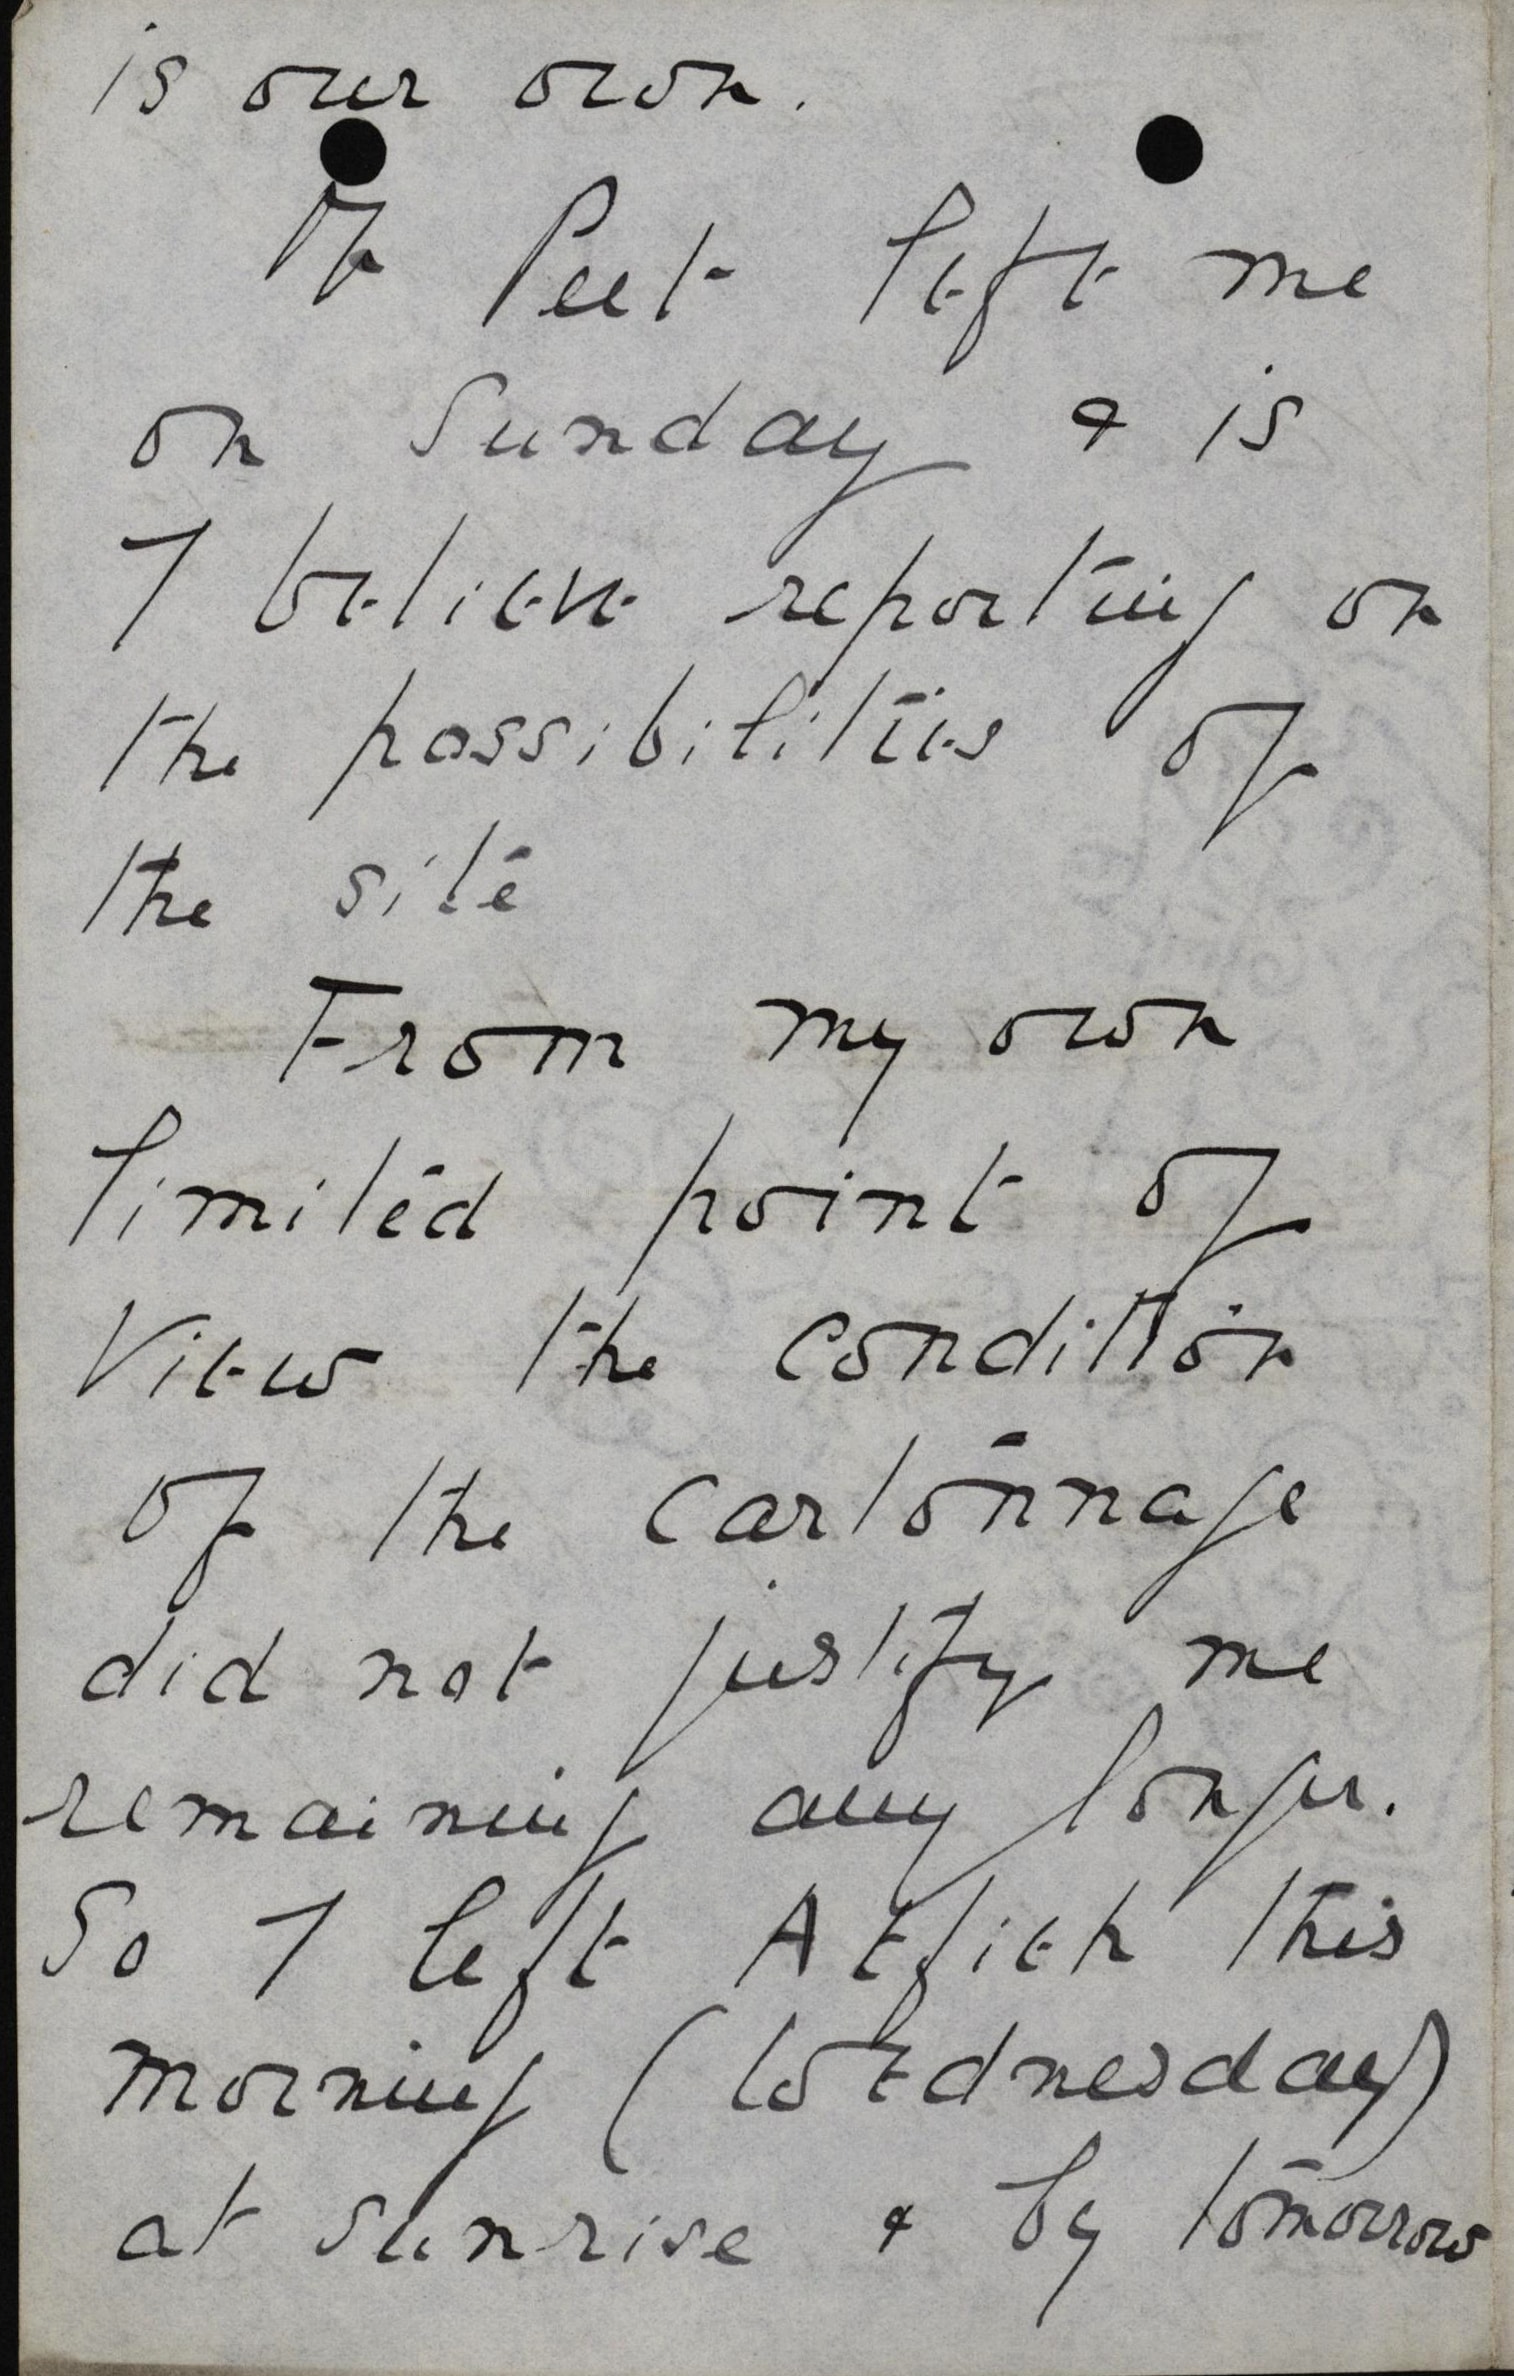 is our own.
Peet left me
on Sunday & is
I believe reporting on
the possibilities of
the site
From my own
limited point of
view the condition
of the cartonnage
did not justify me
remaining any longer.
So I left Atfieh this
morning (Wednesday)
at sunrise & by tomorrow